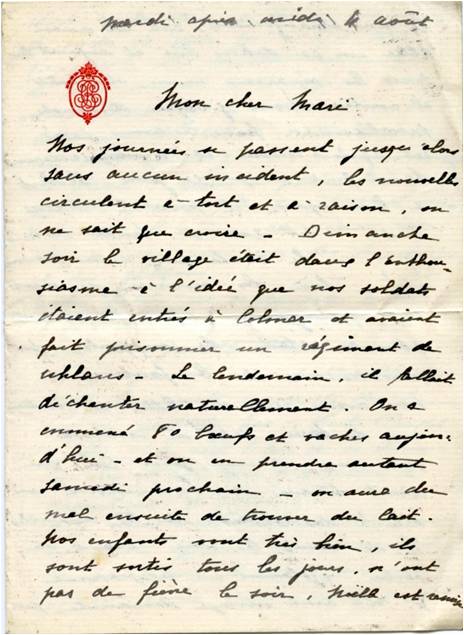 mardi après midi 4 août
Mon cher Mari
Nos journées se passent jusqu'alors
sans aucun incident, les nouvelles
circulent à tort et à raison, on
ne sait que croire - Dimanche
soir le village était dans l'enthou-
siasme à l'idée que nos soldats
étaient entrés à Colmar et avaient
fait prisonnier un régiment de
uhlans - Le lendemain, il fallait
déchanter naturellement. On a
emmené 70 bœufs et vaches aujour-
d'hui - et on en prendra autant
samedi prochain - on aura du
mal ensuite de trouver du lait.
Nos enfants vont très bien, ils
sont sortis tous les jours, n'ont
pas de fièvre le soir, est